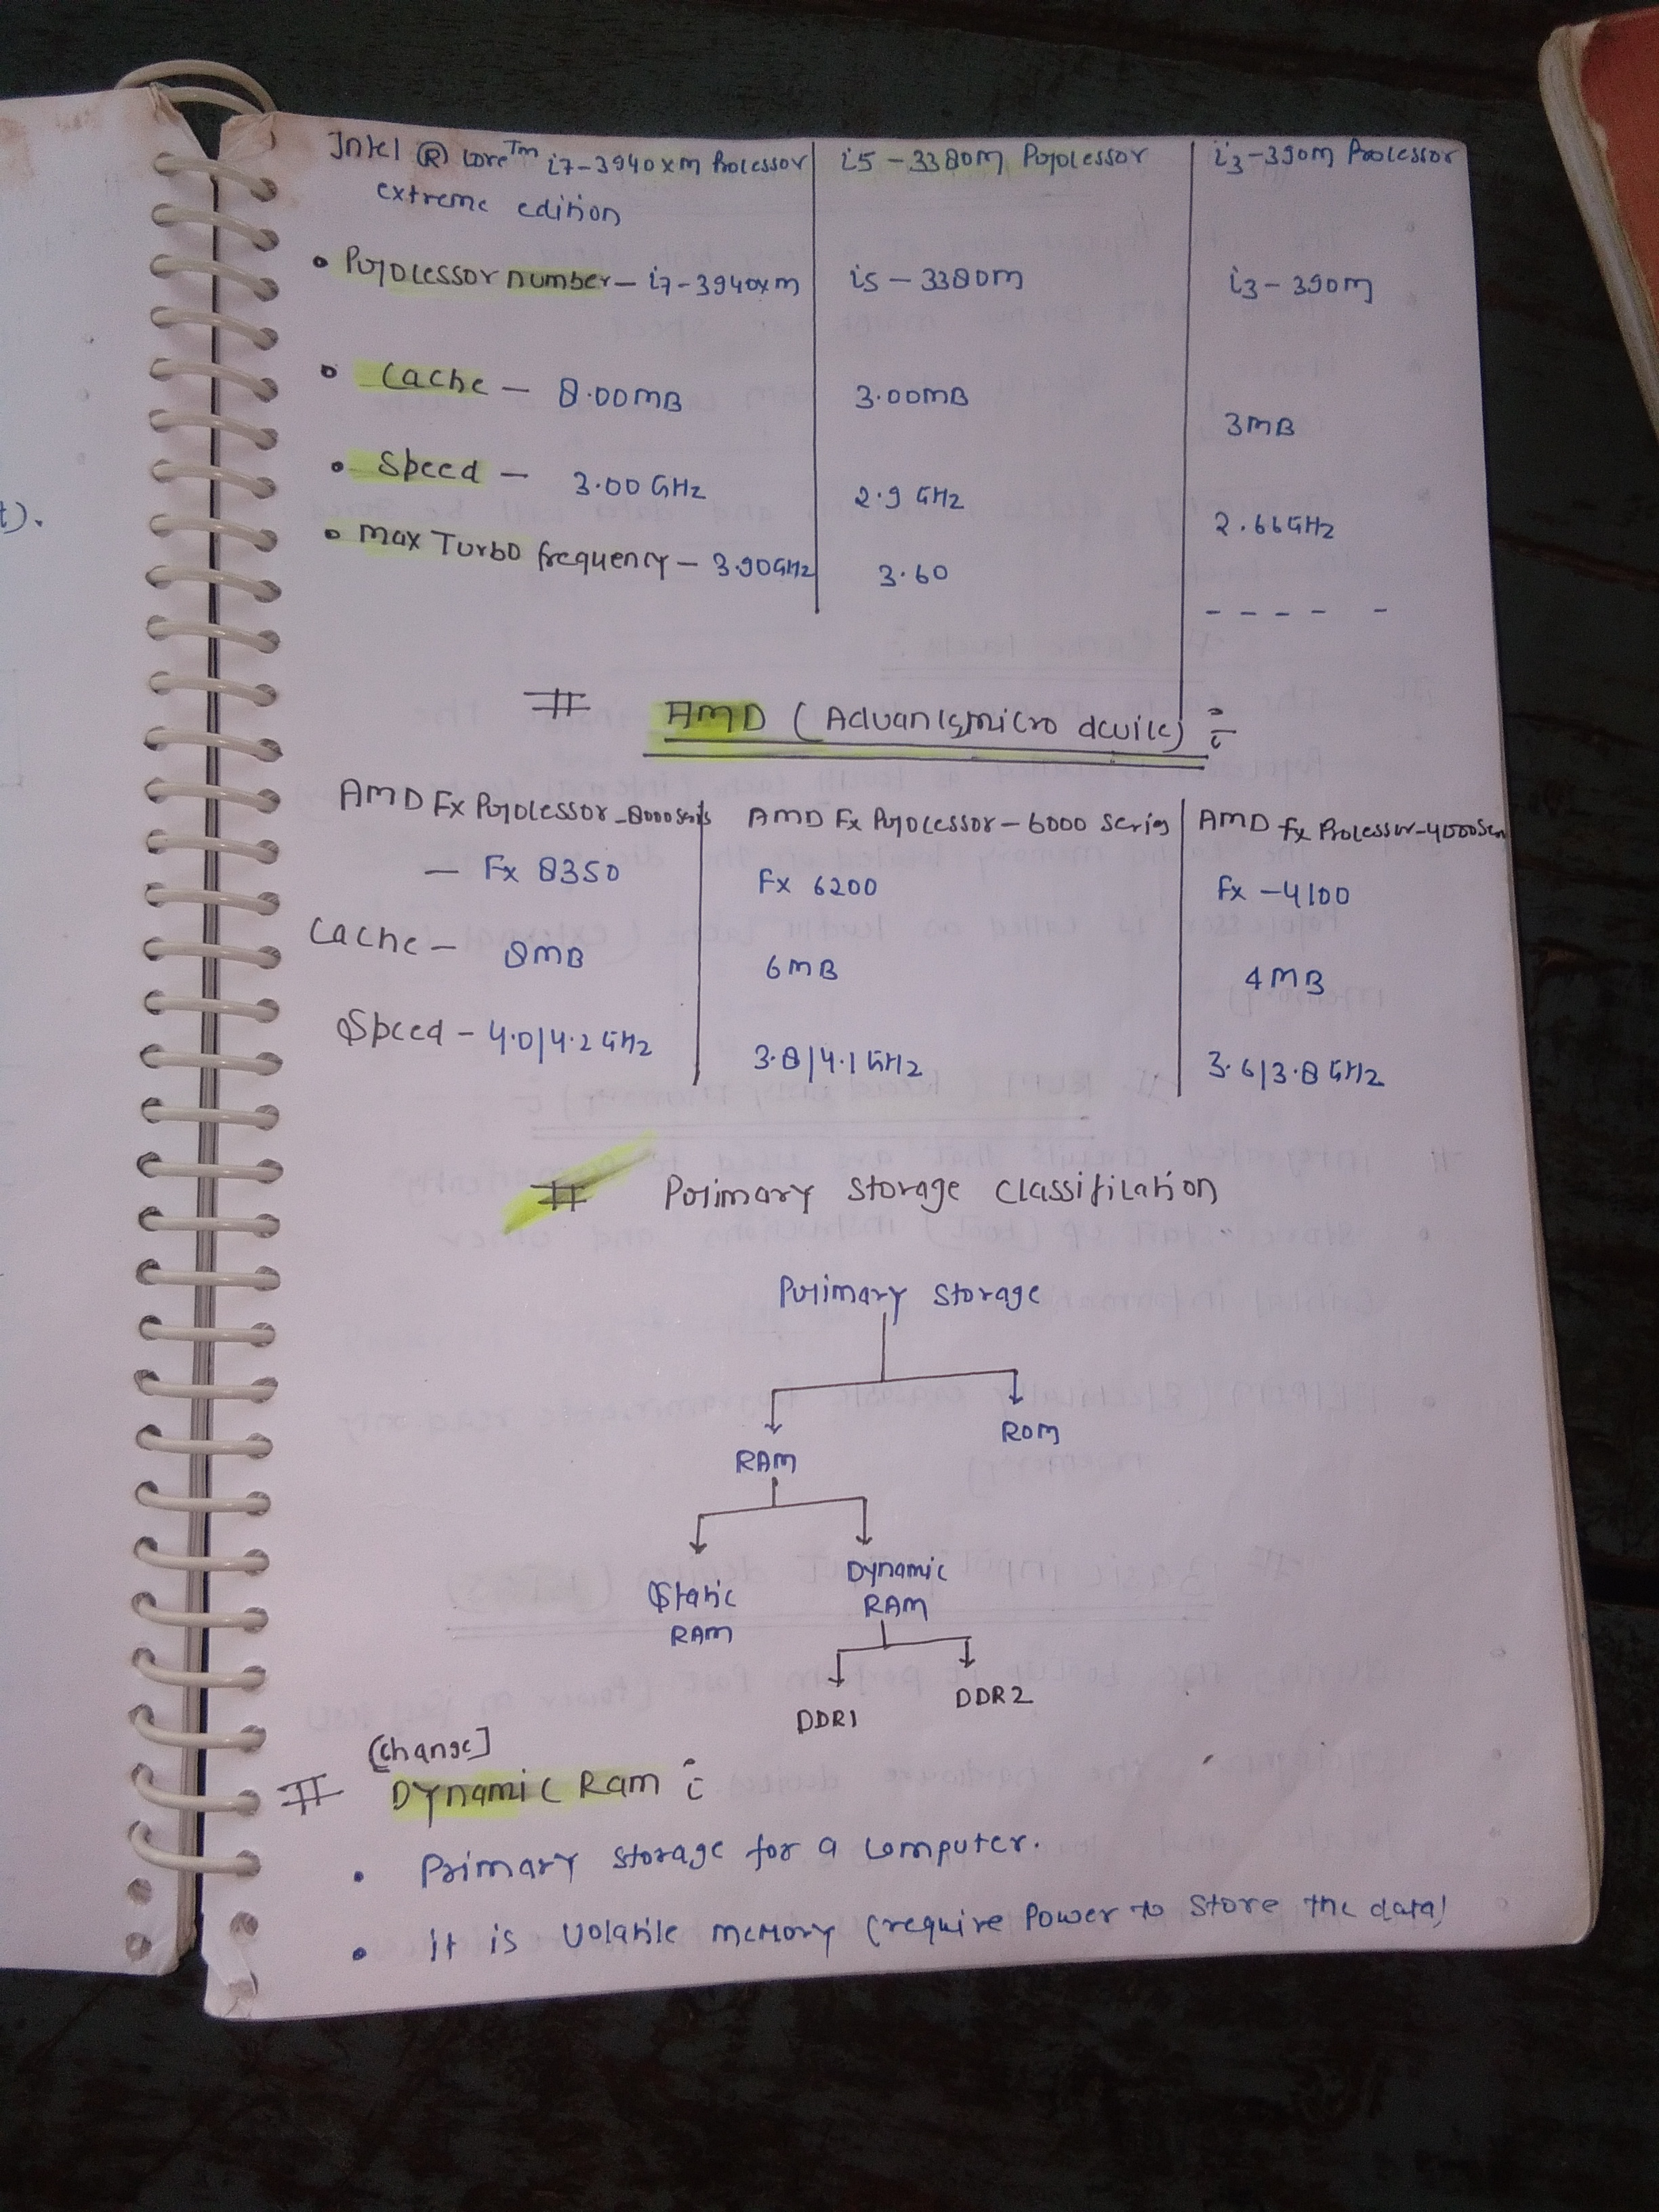 t).
Intel ® Core™ i7-3940xm Processor | i5-3380m Processor | i3-390m Processor
extreme edition
• Processor number - i7-3940xm | i5-3380m | i3-390m
• Cache - 8.00MB | 3.00MB | 3MB
• Speed - 3.00 GHz | 2.9 GHz | 2.66GHz
• Max Turbo frequency - 3.90GHz | 3.60 | - - - - -
# AMD (Advancs micro device) :-
AMD Fx Processor - 8000 series | AMD Fx Processor - 6000 series | AMD fx Processor - 4000 Sen
- Fx 8350 | Fx 6200 | fx - 4100
Cache - 8MB | 6MB | 4MB
Speed - 4.0/4.2 GHz | 3.8/4.1 GHz | 3.6/3.8 GHz
# Primary Storage Classification
Primary Storage
RAM ROM
Static RAM Dynamic RAM
DDR1 DDR2
[Change]
# Dynamic Ram :
• Primary storage for a computer.
• it is volatile memory (require Power to store the data)